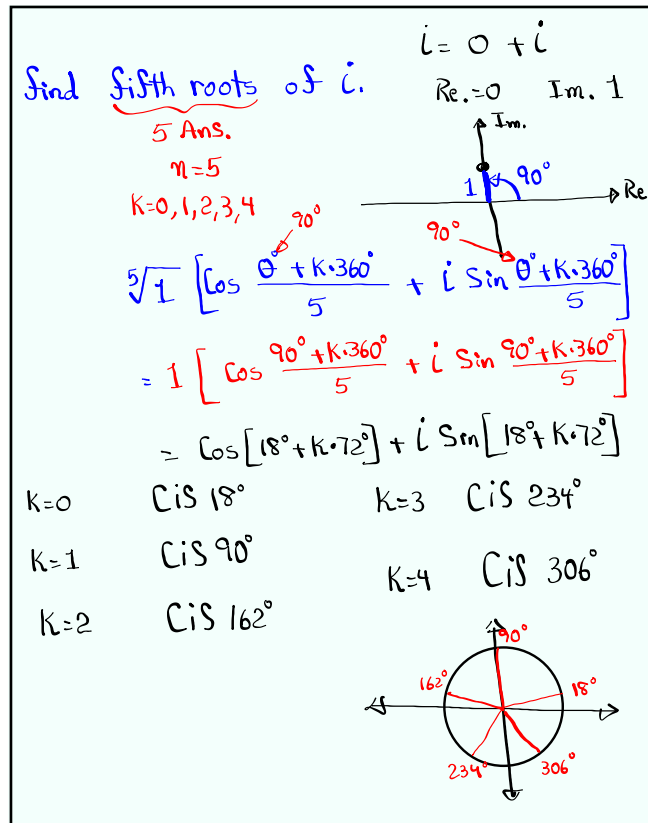 i = 0 + i
find fifth roots of i.
Re.=0 Im. 1
5 Ans.
n=5
K=0,1,2,3,4
Im.
1
90°
Re
90°
90°
⁵√1 [Cos (θ° + K·360°)/5 + i Sin (θ° + K·360°)/5]
= 1 [Cos (90° + K·360°)/5 + i Sin (90° + K·360°)/5]
= Cos[18° + K·72°] + i Sin[18° + K·72°]
K=0 CiS 18°
K=3 CiS 234°
K=1 CiS 90°
K=4 CiS 306°
K=2 CiS 162°
90°
162°
18°
234°
306°